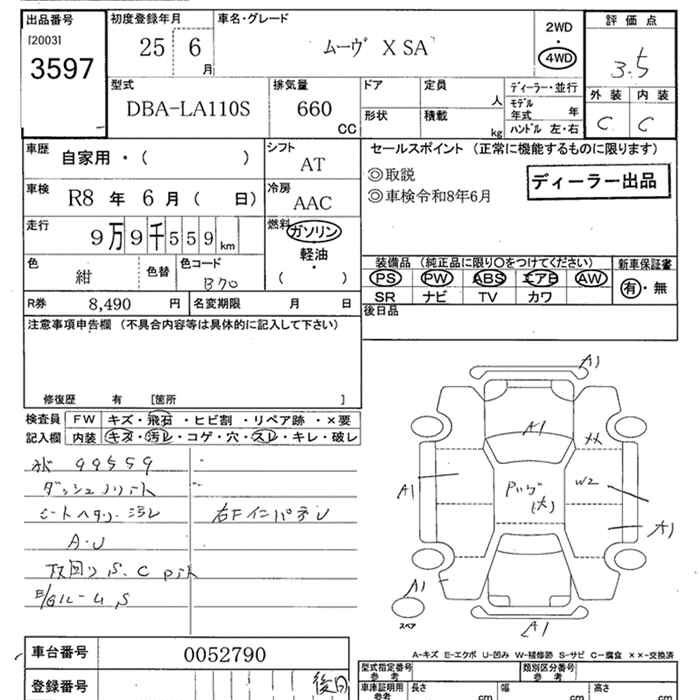 出品番号
[2003]
3597
初度登録年月
25 6
月
車名・グレード
ムーヴ X SA
2WD
・
4WD
評価点
3.5
外装 内装
C C
型式
DBA-LA110S
排気量
660
CC
ドア
形状
定員
人
積載
kg
ディーラー・並行
モデル
年式 年
ハンドル 左・右
車歴 自家用・( )
シフト
AT
車検 R8 年 6 月 ( 日)
冷房
AAC
走行
9万9千559 km
燃料
ガソリン
軽油
・
( )
色
紺
色替
色コード
B70
R券 8,490 円
名変期限 月 日
セールスポイント (正常に機能するものに限ります)
◎取説
◎車検令和8年6月
ディーラー出品
装備品 (純正品に限り○をつけてください)
PS PW ABS エアB AW
SR ナビ TV カワ
新車保証書
有・無
後日品
注意事項申告欄 (不具合内容等は具体的に記入して下さい)
修復歴 有 [箇所 ]
検査員
記入欄
FW キズ・飛石・ヒビ割・リペア跡・×要
内装 キズ・汚レ・コゲ・穴・スレ・キレ・破レ
99559
A・U
A1
A1
A1
W2
A1
A1
スペア
A-キズ E-エクボ U-凹み W-補修跡 S-サビ C-腐食 ××-交換済
車台番号 0052790
登録番号
後日
型式指定番号
参考
類別区分番号
参考
車庫証明用
参考
長さ cm
幅 cm
高さ cm